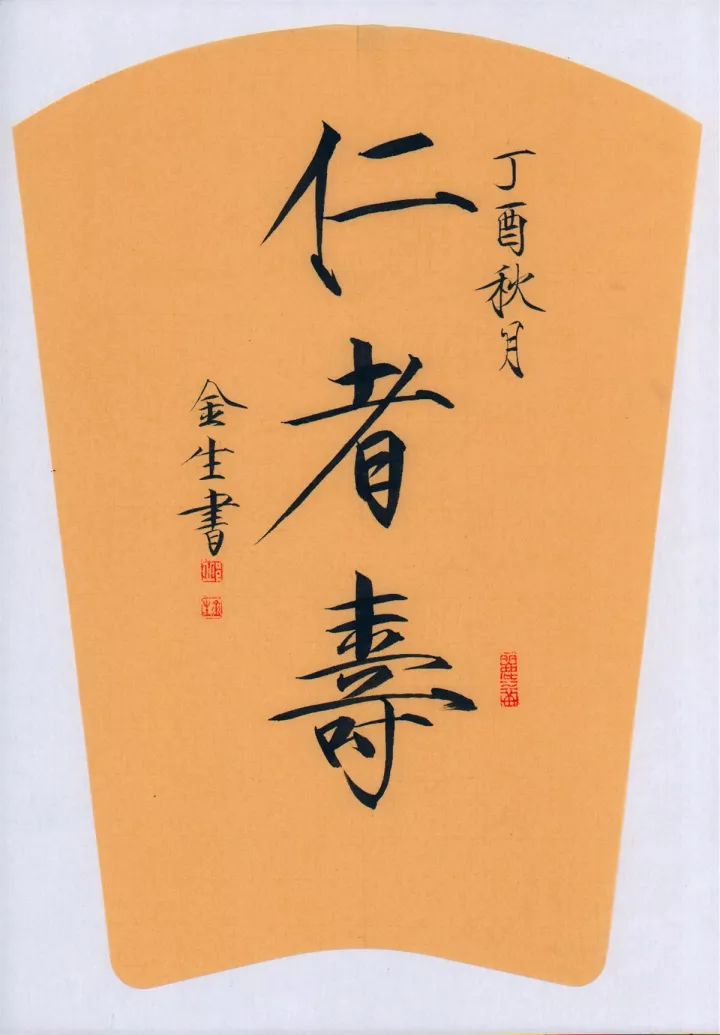 丁酉秋月
仁者壽
金生書